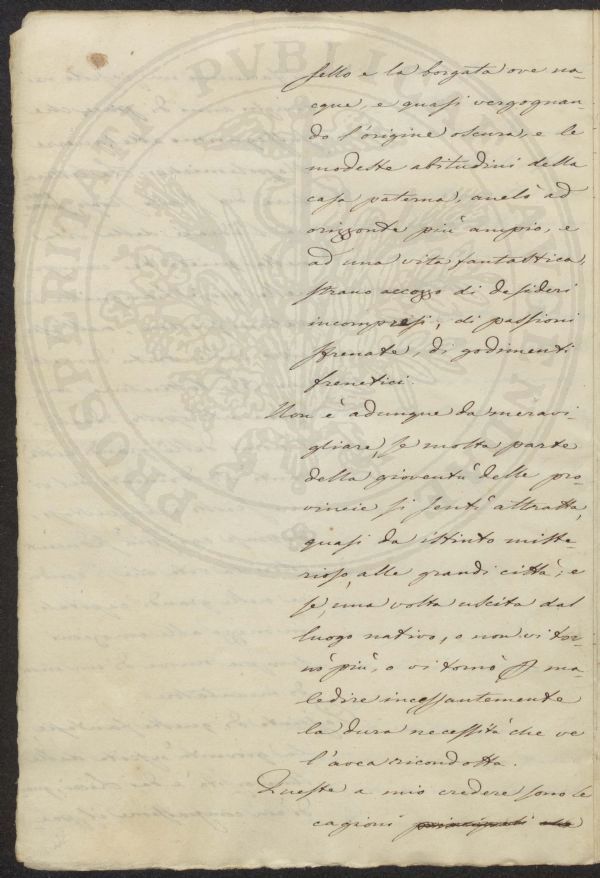 sello e la borgata ove na=
cque, e quasi vergognan
do l'origine oscura, e le
modeste abitudini della
casa paterna, anelò ad
orizzonte più ampio, e
ad una vita fantastica,
strano accozzo di desideri
incompresi, di passioni
sfrenate, di godimenti
frenetici.
Non è adunque da meravi=
gliare, se molta parte
della gioventù delle pro=
vincie si sentì attratta,
quasi da istinto miste=
rioso, alle grandi città; e
se, una volta uscita dal
luogo nativo, o non vi tor=
nò più, o vi tornò p ma=
ledire incessantemente
la dura necessità che ve
l'avea ricondotta.
Queste a mio credere sono le
cagioni principali che
PROSPERITATI PVBLICAE